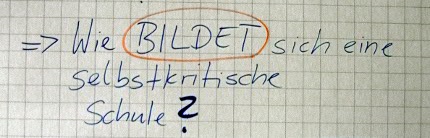 => Wie BILDET sich eine
selbstkritische
Schule?